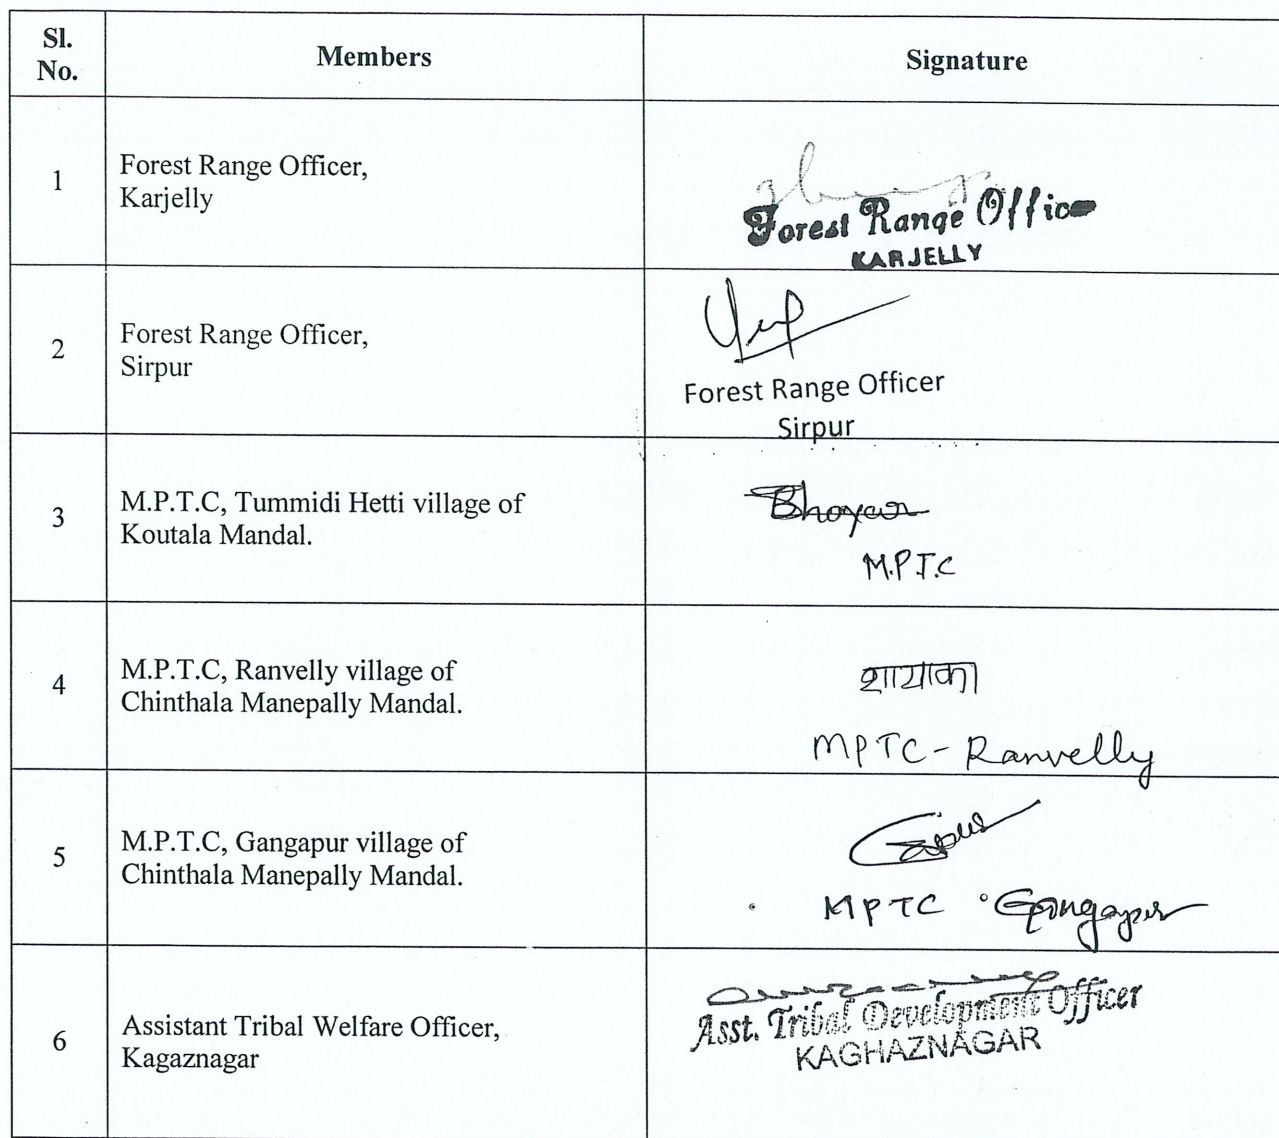 Sl. No. Members Signature
1 Forest Range Officer,
Karjelly
Forest Range Office
KARJELLY
2 Forest Range Officer,
Sirpur
Forest Range Officer
Sirpur
3 M.P.T.C, Tummidi Hetti village of
Koutala Mandal.
Bhoyar
M.P.T.C
4 M.P.T.C, Ranvelly village of
Chinthala Manepally Mandal.
शायाका
MPTC - Ranvelly
5 M.P.T.C, Gangapur village of
Chinthala Manepally Mandal.
MPTC Gangapur
6 Assistant Tribal Welfare Officer,
Kagaznagar
Asst. Tribal Development Officer
KAGHAZNAGAR